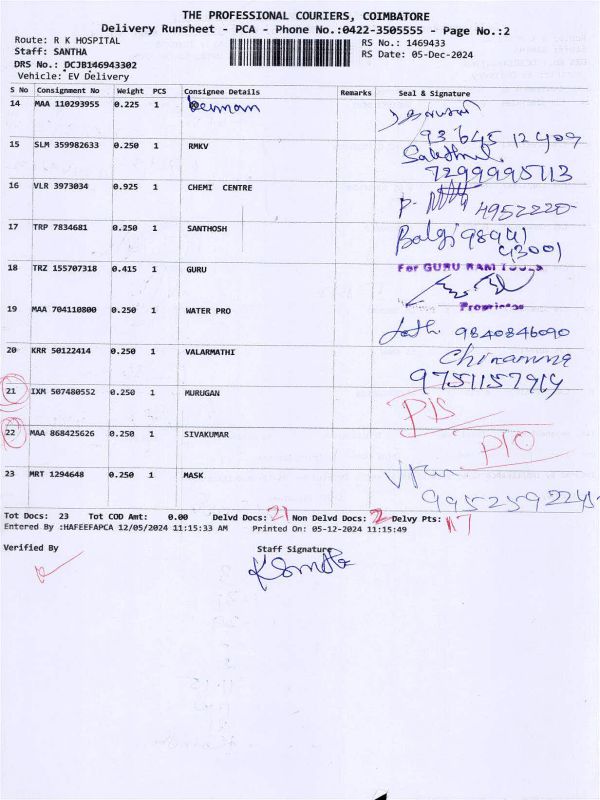 THE PROFESSIONAL COURIERS, COIMBATORE
Delivery Runsheet - PCA - Phone No.:0422-3505555 - Page No.:2
Route: R K HOSPITAL
RS No.: 1469433
Staff: SANTHA
RS Date: 05-Dec-2024
DRS No.: DCJB146943302
Vehicle: EV Delivery
S No Consignment No Weight PCS Consignee Details Remarks Seal & Signature
14 MAA 110293955 0.225 1
93645 12409
15 SLM 359982633 0.250 1 RMKV
7299995113
16 VLR 3973034 0.925 1 CHEMI CENTRE
4952220
17 TRP 7834681 0.250 1 SANTHOSH Balaji 98941
43001
18 TRZ 155707318 0.415 1 GURU For GURU RAM TOOLS
Proprietor
19 MAA 704110800 0.250 1 WATER PRO
9840846090
20 KRR 50122414 0.250 1 VALARMATHI
9751157919
21 IXM 507480552 0.250 1 MURUGAN P/S
22 MAA 868425626 0.250 1 SIVAKUMAR P/O
23 MRT 1294648 0.250 1 MASK
9952592245
Tot Docs: 23 Tot COD Amt: 0.00 Delvd Docs: 21 Non Delvd Docs: 2 Delvy Pts: 17
Entered By :HAFEEFAPCA 12/05/2024 11:15:33 AM Printed On: 05-12-2024 11:15:49
Verified By Staff Signature